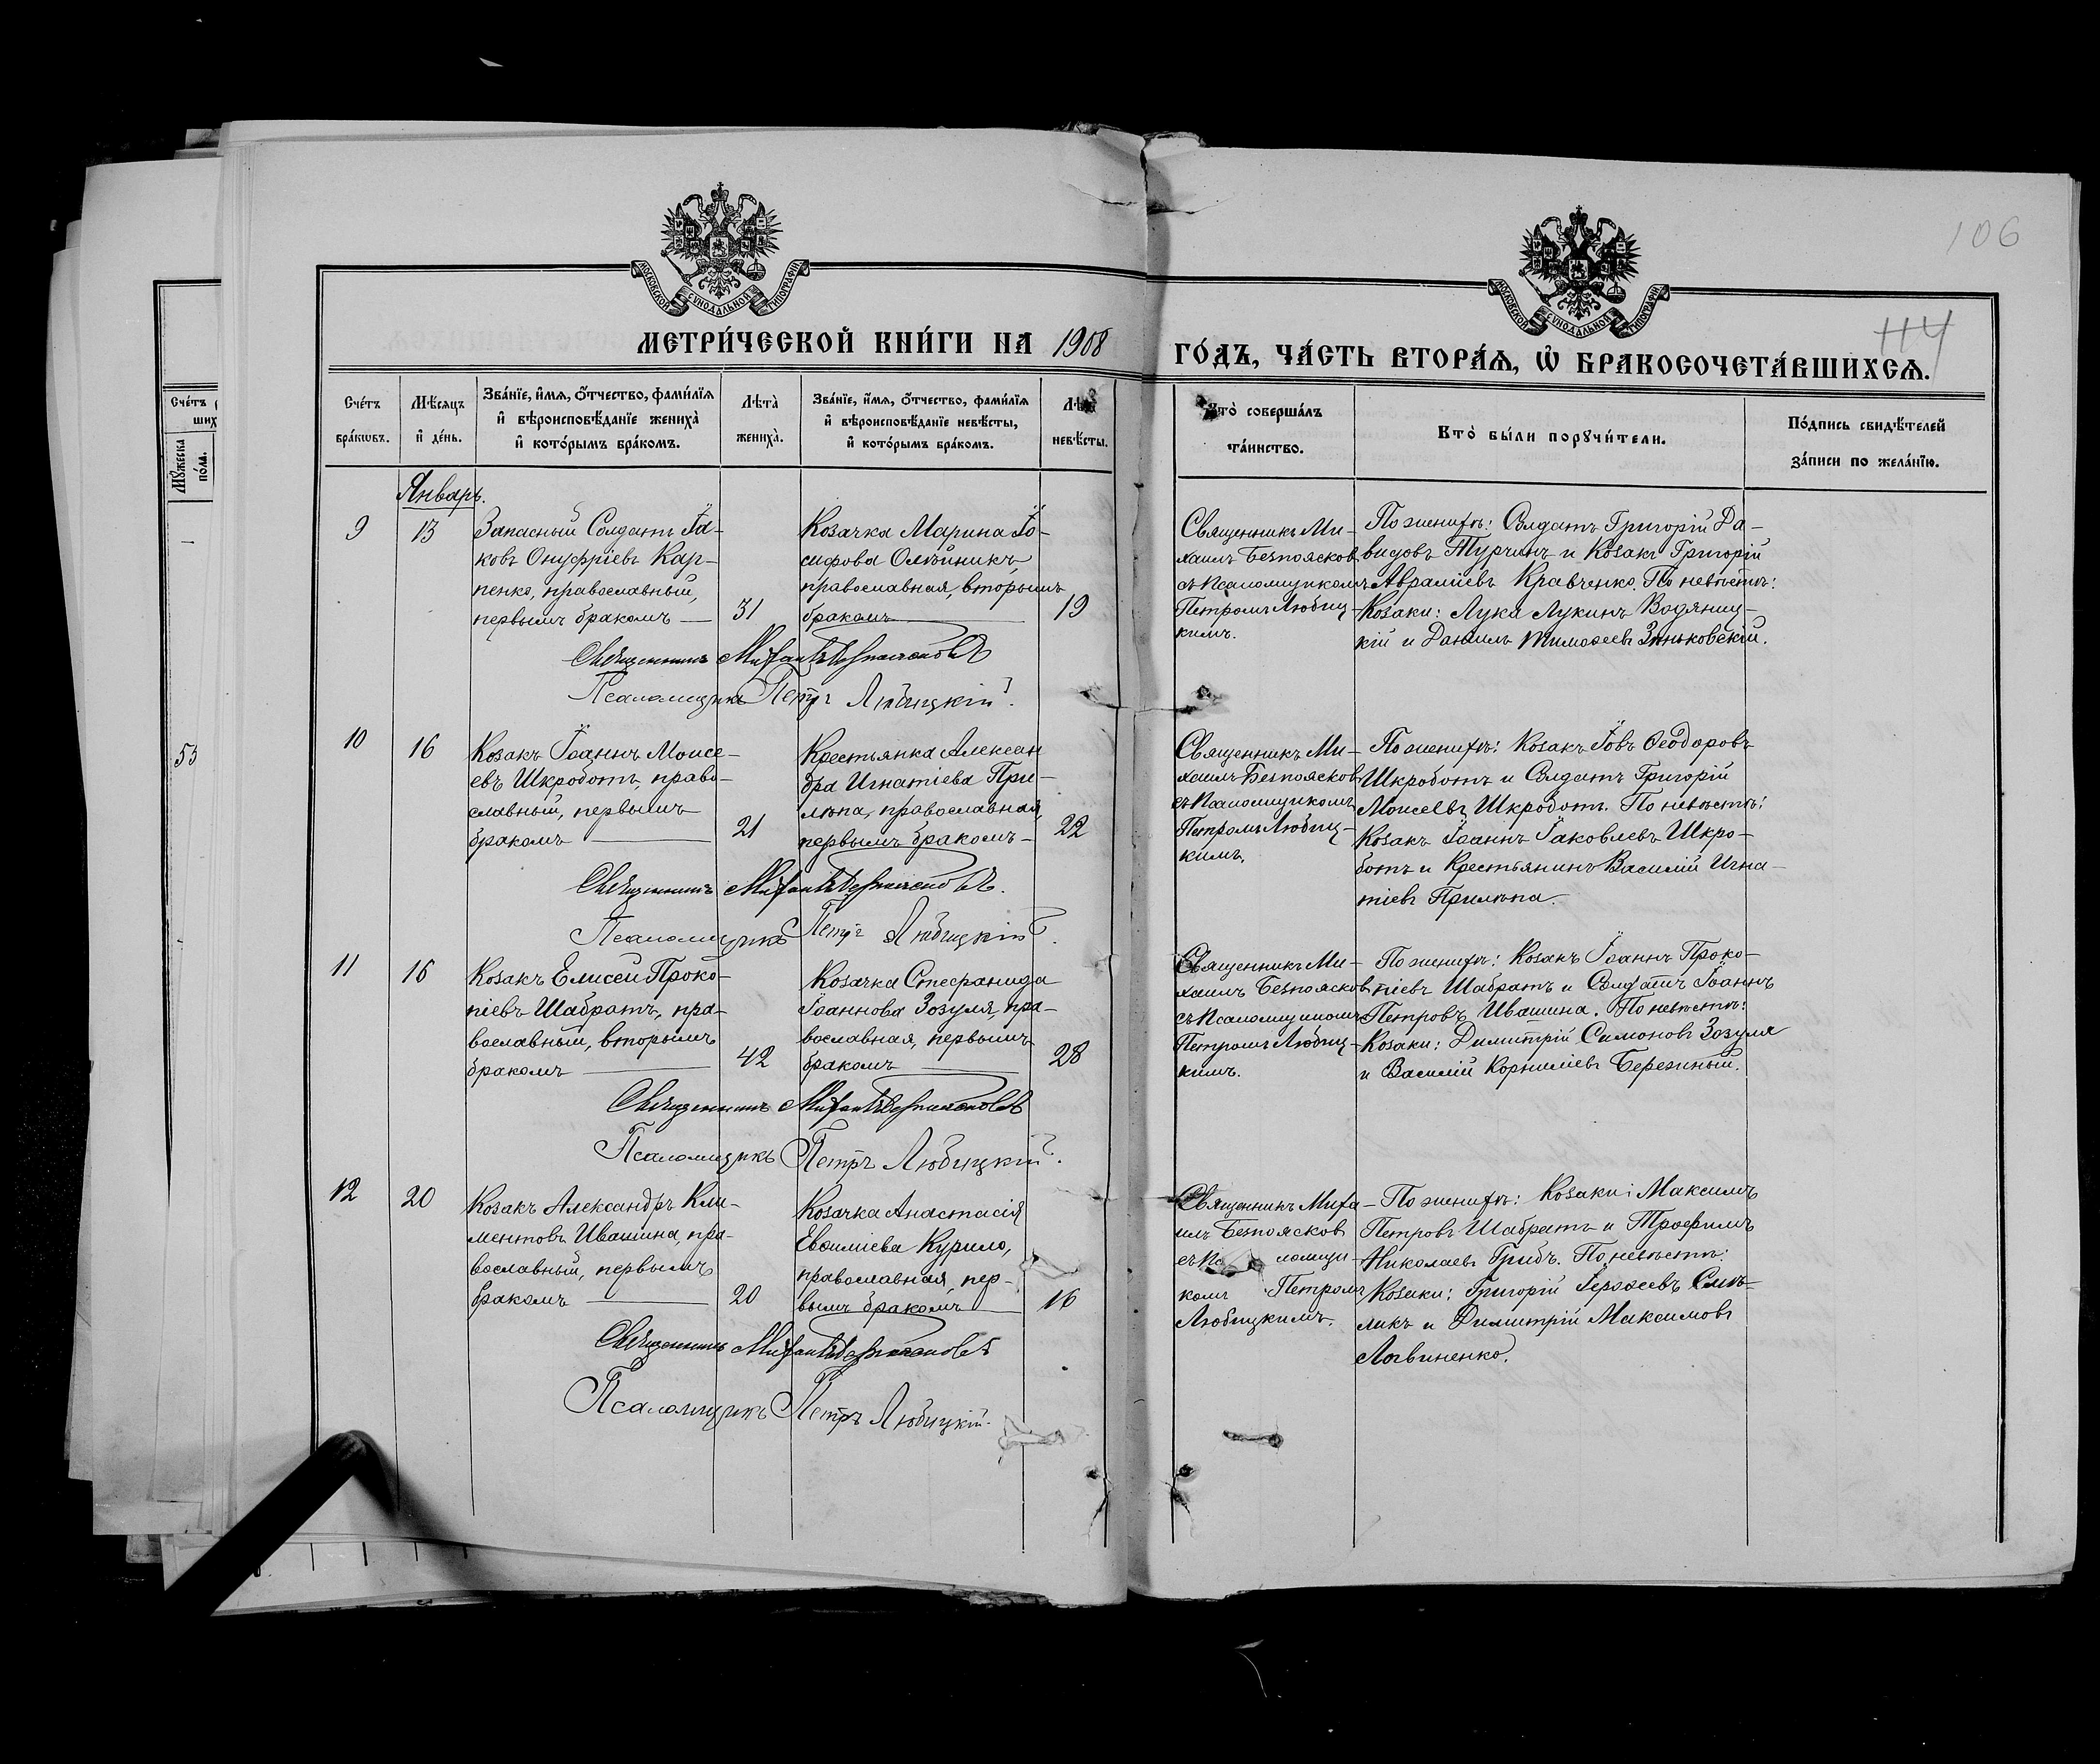 106
114
МОСКОВСКОЙ СѴНОДАЛЬНОЙ ТИПОГРАФІИ
МОСКОВСКОЙ СѴНОДАЛЬНОЙ ТИПОГРАФІИ
МЕТРИ́ЧЕСКОЙ КНИ́ГИ НА 1908
ГО́ДЪ, ЧА́СТЬ ВТОРА́Ѧ, Ѽ БРАКОСОЧЕТА́ВШИХСѦ.
Сче́тъ
ших
Мꙋ́жеска
по́ла.
53
Сче́тъ
бра́кѡвъ.
Мѣ́сяцъ
и҆ де́нь.
Зва́нїе, и҆́мѧ, ѻ҆́тчество, фами́лїѧ
и҆ вѣроисповѣ́данїе жениха̀
и҆ кото́рымъ бра́комъ.
Лѣта̀
жениха̀.
Зва́нїе, и҆́мѧ, ѻ҆́тчество, фами́лїѧ
и҆ вѣроисповѣ́данїе невѣ́сты,
и҆ кото́рымъ бра́комъ.
невѣ́сты.
Кто̀ соверша́лъ
та́инство.
Кто̀ бы́ли порꙋчи́тели.
По́дпись свидѣ́телей
за́писи по жела́нїю.
Январь.
9
13
Запасный Солдатъ Іа-
ковъ Онуфріевъ Кар-
пенко, православный,
первымъ бракомъ —
31
Козачка Марина Іо-
сифова Олѣйникъ,
православная, вторымъ
бракомъ
19
Священникъ Ми-
хаилъ Безпоясков
съ Псаломщикомъ
Петромъ Любиц-
кимъ.
По женихѣ: Солдатъ Григорій Да-
видовъ Турчинъ и Козакъ Григорій
Авраміевъ Кравченко. По невѣстѣ:
Козаки: Лука Лукинъ Водяниц-
кій и Даніилъ Тимофеевъ Зинковскій.
Священникъ Михаилъ Безпоясковъ
Псаломщикъ Петръ Любицкій.
10
16
Козакъ Іоаннъ Моисе-
евъ Шкроботъ, право-
славный, первымъ
бракомъ —
21
Крестьянка Алексан
дра Игнатіева При-
лѣпа, православная,
первымъ бракомъ-
22
Священникъ Ми-
хаилъ Безпоясков
съ Псаломщикомъ
Петромъ Любиц-
кимъ.
По женихѣ: Козакъ Іовъ Ѳеодоровъ
Шкроботъ и Солдатъ Григорій
Моисеевъ Шкроботъ. По невѣстѣ:
Козакъ Іоаннъ Іаковлевъ Шкро-
ботъ и Крестьянинъ Василій Игна-
тіевъ Прилѣпа.
Священникъ Михаилъ Безпоясковъ.
Псаломщикъ Петръ Любицкій.
11
16
Козакъ Елисей Проко-
піевъ Шабратъ, пра-
вославный, вторымъ
бракомъ —
42
Козачка Стефанида
Іоаннова Зозуля, пра-
вославная, первымъ
бракомъ —
28
Священникъ Ми-
хаилъ Безпоясков
съ Псаломщикомъ
Петромъ Любиц-
кимъ.
По женихѣ: Козакъ Іоаннъ Проко-
піевъ Шабратъ и Солдатъ Іоаннъ
Петровъ Ивашина. По невѣстѣ:
Козаки: Димитрій Симоновъ Зозуля
и Василій Корниліевъ Бережный.
Священникъ Михаилъ Безпоясковъ
Псаломщикъ Петръ Любицкій.
12
20
Козакъ Александръ Кли-
ментовъ Ивашина, пра-
вославный, первымъ
бракомъ —
20
Козачка Анастасія
Евфиміева Курило,
православная, пер-
вымъ бракомъ —
16
Священникъ Миха-
илъ Безпоясков
ломщи-
комъ Петромъ
Любицкимъ.
По женихѣ: Козаки: Максимъ
Петровъ Шабратъ и Трофимъ
Николаевъ Грибъ. По невѣстѣ:
Козаки: Григорій
и Димитрій Максимовъ
Логвиненко.
Священникъ Михаилъ Безпоясковъ
Псаломщикъ Петръ Любицкій.